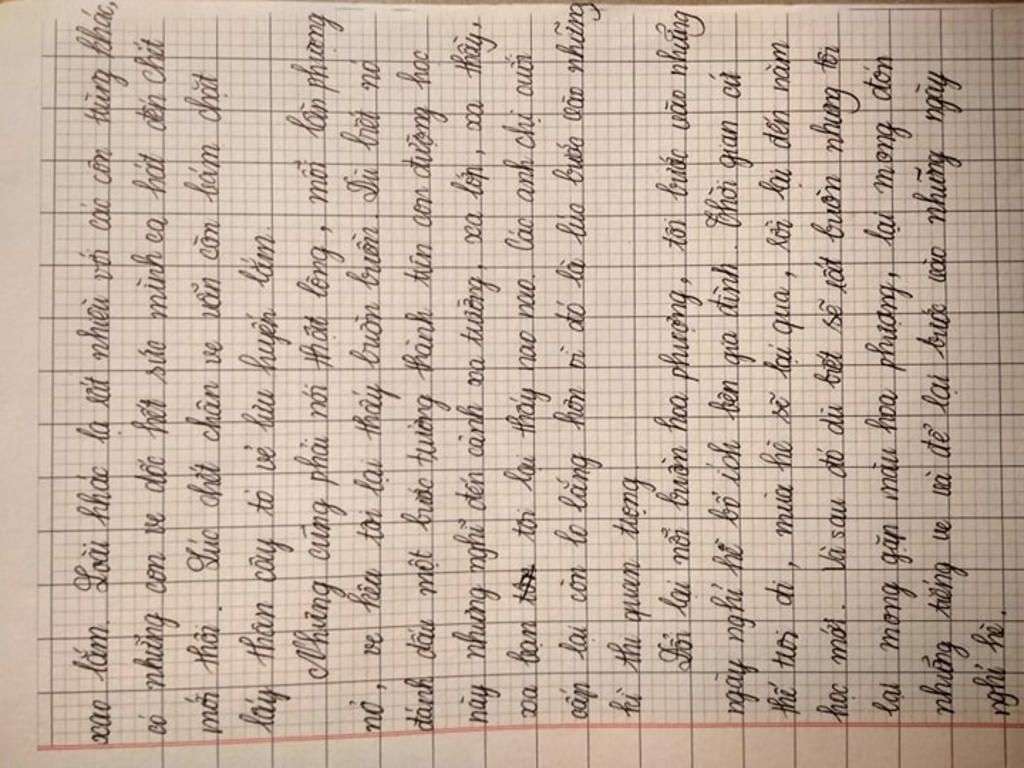 xao lắm. Loài khác lạ rất nhiều với các côn trùng khác,
có những con ve dốc hết sức mình ca hát đến chết
mới thôi. Lúc chết chân ve vẫn còn bám chặt
lấy thân cây tỏ vẻ lưu luyến lắm.
Nhưng cũng phải nói thật lòng, mỗi lần phượng
nở, ve kêu tôi lại thấy buồn buồn. Dù biết nó
đánh dấu một bước trưởng thành trên con đường học
này nhưng nghĩ đến cảnh xa trường, xa lớp, xa thầy,
xa bạn tôi lại thấy nao nao. Các anh chị cuối
cấp lại còn lo lắng hơn vì đó là lúc bước vào những
kì thi quan trọng.
Rồi lại nỗi buồn hoa phượng, tôi bước vào những
ngày nghỉ hè bổ ích bên gia đình. Thời gian cứ
thế trôi đi, mùa hè sẽ lại qua, rồi lại đến năm
học mới. Và sau đó dù biết sẽ rất buồn nhưng tôi
lại mong gặp màu hoa phượng, lại mong đón
những tiếng ve và để lại bước vào những ngày
nghỉ hè.